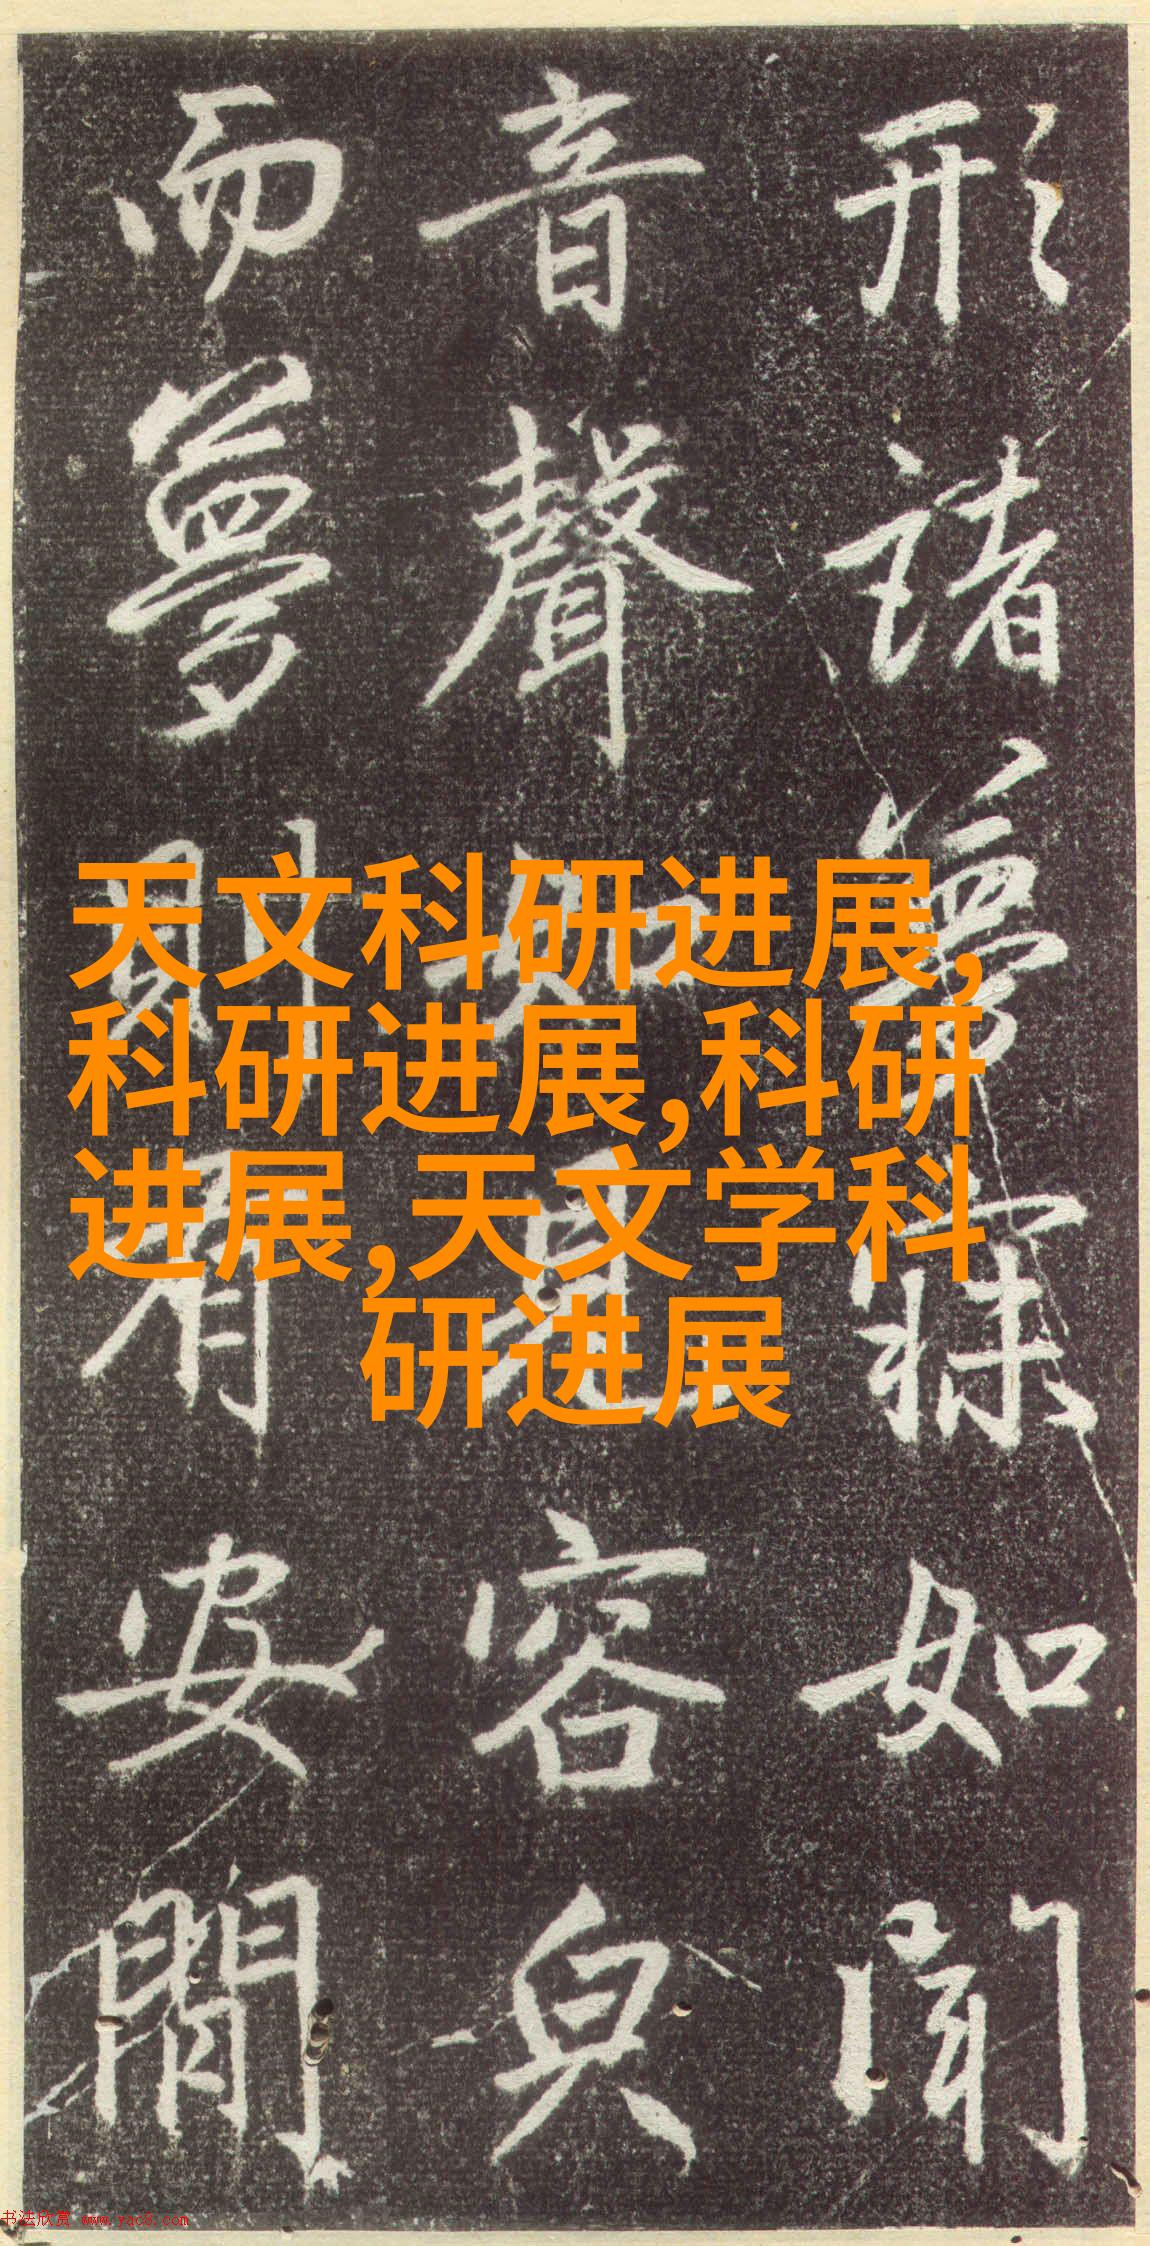 形诸夢寐如聞
音聲如見容皃
而夢則有安閒
天文科研进展,
科研进展,科研
进展,天文学科
研进展
书法欣赏 www.yac8.com